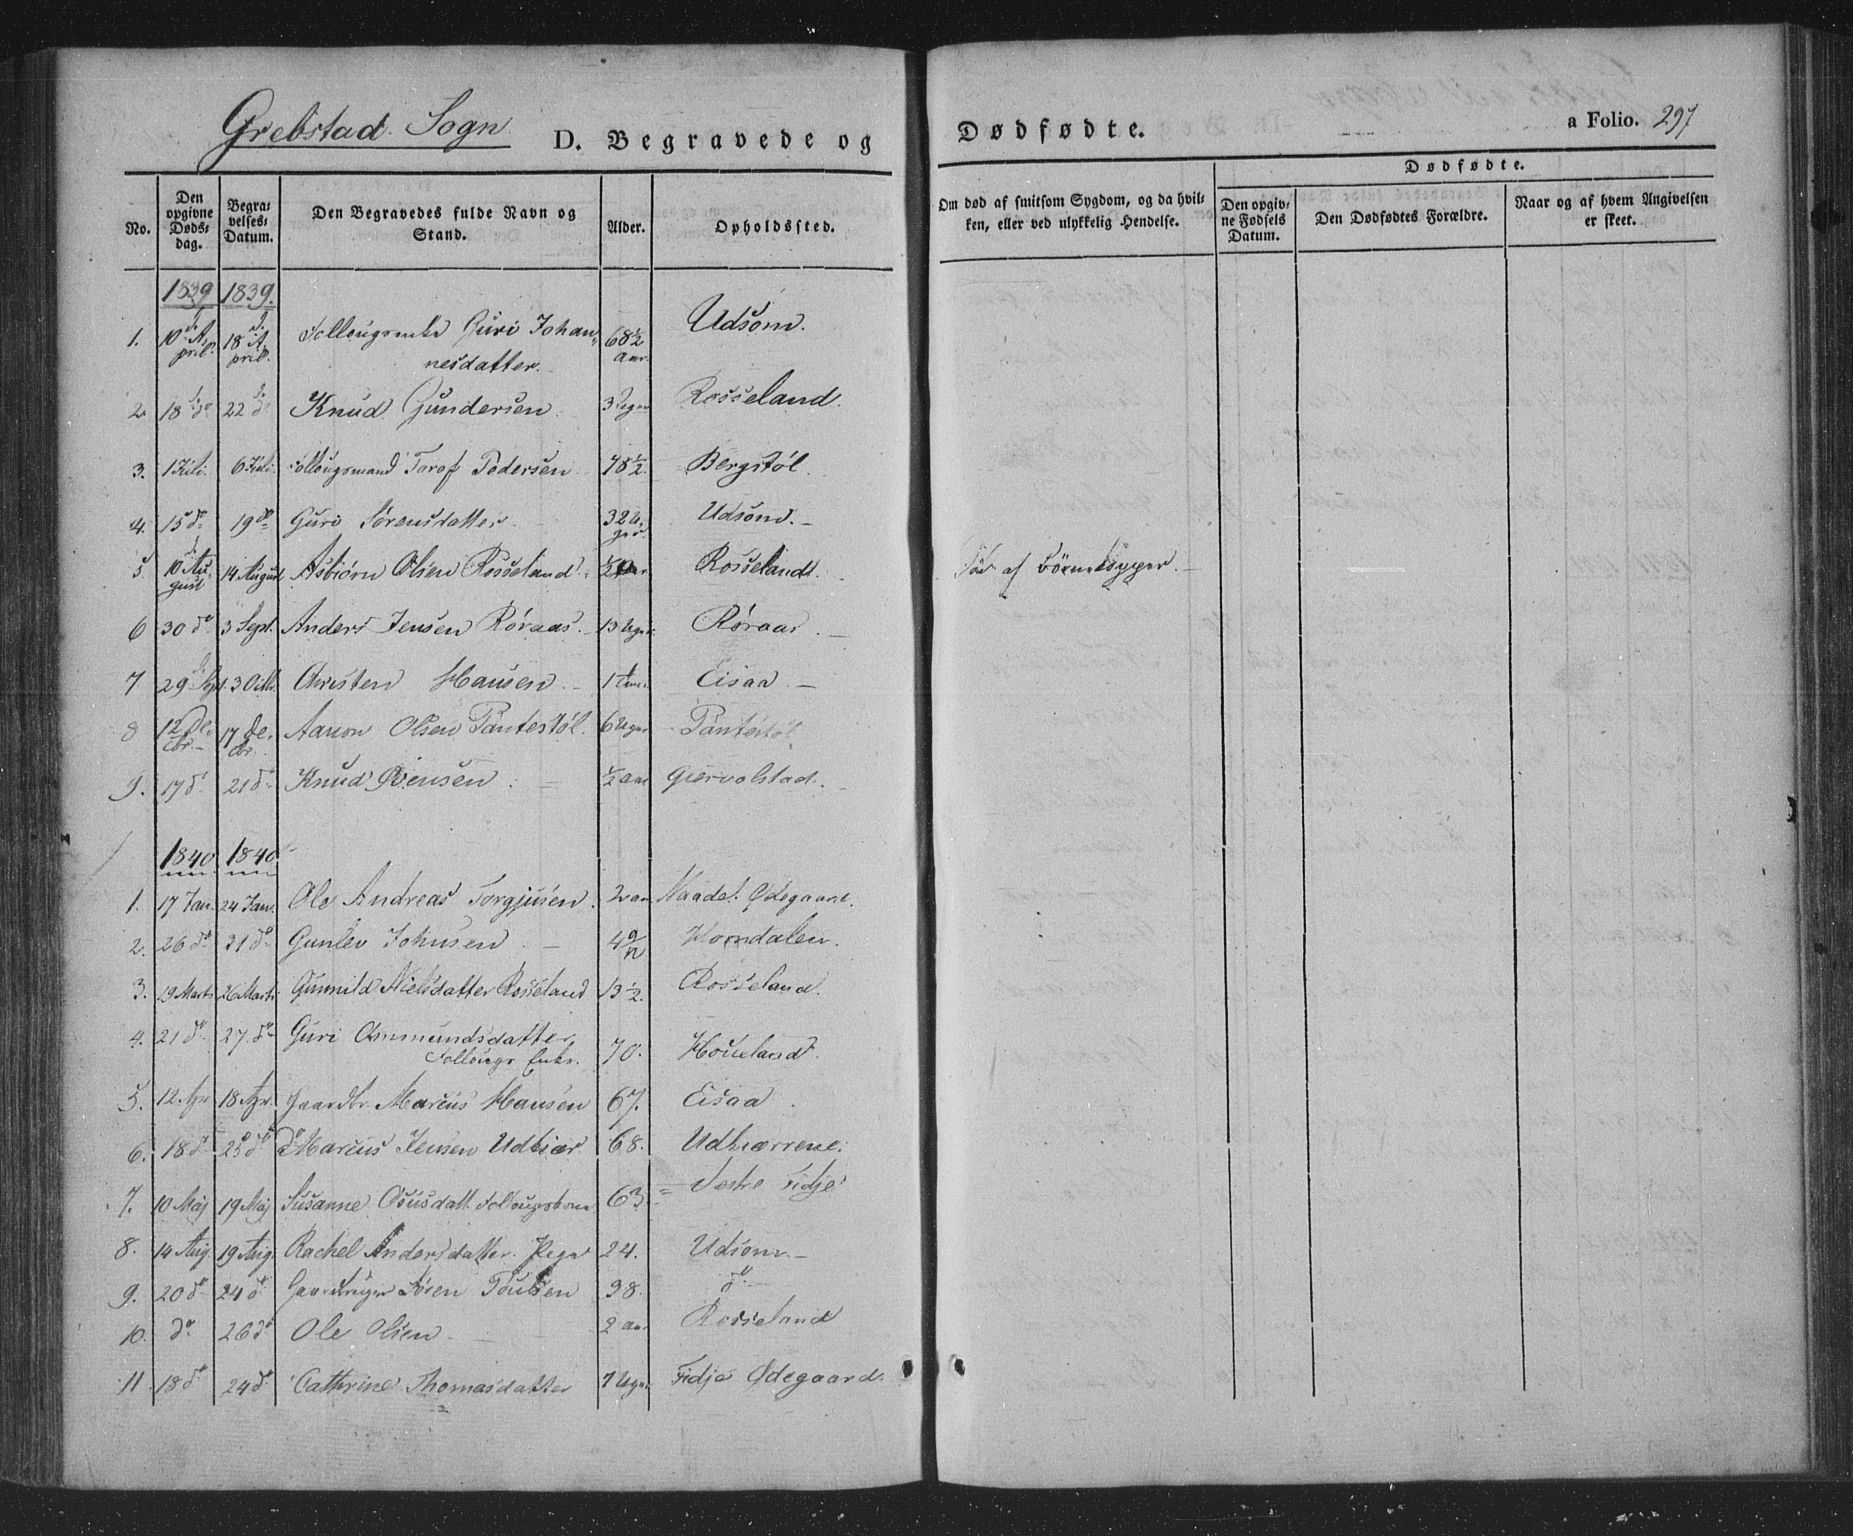 Grebstad Sogn
D. Begravede og Dødfødte. a Folio. 297
No.
Den opgivne Døds-dag.
Begra-velses-Datum.
Den Begravedes fulde Navn og Stand.
Alder.
Opholdssted.
Om død af smitsom Sygdom, og da hvil-ken, eller ved ulykkelig Hendelse.
Dødfødte.
Den opgiv-ne Fødsels Datum.
Den Dødfødtes Forældre.
Naar og af hvem Angivelsen er skeet.
1839 1839.
1. 10 April. 18 April. Guri Johan-nesdatter. 68½ Aar. Udsom.
2 18 do 22 do Knud Gundersen 3 Uger Rosseland.
3. 1 Juli. 6 Juli. Follougsmand Pedersen 78½. Bergstøl.
4. 15 do 19 do Guri Sørensdatter. 32 Udsom. –
5 10 August 14 August Asbiørn Olsen Rosseland. ½ Aar Rosseland. Død af –
6 30 do 3 Sept. Anders Jensen Røraas. 13 Uger Røraas. –
7 29 Sept. 3 Octb. Christen Hansen – 1 Eisaa –
8 12 De.cbr. 17 De.cbr. Aanon Olsen Pantestøl. 6 Uger Pantestøl.
9. 17 do 21 do Knud – ½ Aar Giervolstad. –
1840 1840
1. 17 Jan. 24 Jan. Ole Andreas Torgjusen. 2 aar Ødegaard.
2. 26 do 31 do Gunlev Johnsen – 4 Horndalen.
3. 19 Marts 26 Marts Gunnild Nielsdatter Rosseland 13½. Rosseland.
4. 21 do 27. do Guri Ommundsdatter
Follougs Enke. 70. Houeland.
5. 12 Apr 18 Apr. Gaardbr. Marcus Hansen 67. Eisaa
6. 18 do 23 do do Marcus Jensen 68.
7. 10 Maj 19 Maj Susanne 63 Fidje
8. 14 Aug. 19 Aug. Rachel Andersdatter. Pige 24. Udsom –
9. 20 do 24 do Gaardbruger Søren 38. do –
10. do. 26 do Ole Olsen – 2 aar Rosseland
11 18 do 24 do Cathrine Thomasdatter 7 Uger Fidje Ødegaard.